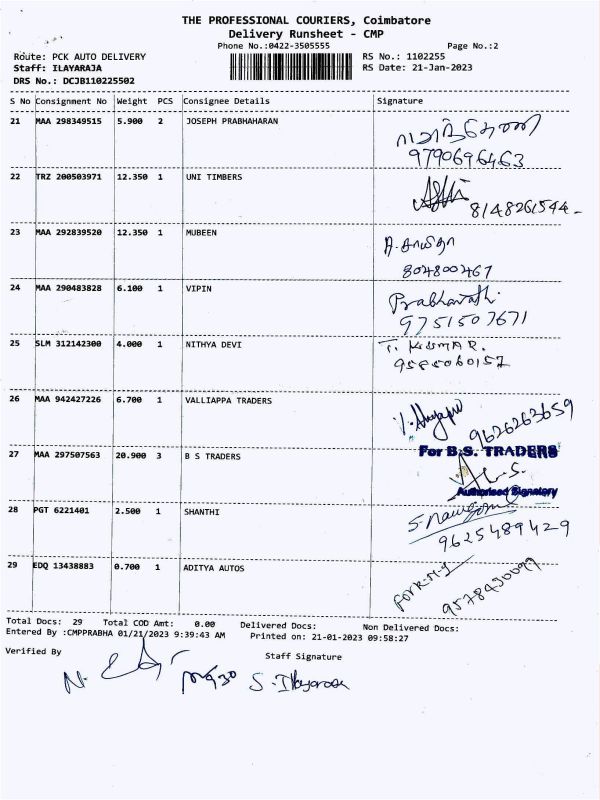 THE PROFESSIONAL COURIERS, Coimbatore
Delivery Runsheet - CMP
Phone No.:0422-3505555 Page No.:2
Route: PCK AUTO DELIVERY RS No.: 1102255
Staff: ILAYARAJA RS Date: 21-Jan-2023
DRS No.: DCJB110225502
S No Consignment No Weight PCS Consignee Details Signature
21 MAA 298349515 5.900 2 JOSEPH PRABHAHARAN
9790696463
22 TRZ 200503971 12.350 1 UNI TIMBERS
8148261544-
23 MAA 292839520 12.350 1 MUBEEN
804800467
24 MAA 290483828 6.100 1 VIPIN Prabhavathi
9751507671
25 SLM 312142300 4.000 1 NITHYA DEVI T. KUMAR.
9585060157
26 MAA 942427226 6.700 1 VALLIAPPA TRADERS
9626263659
For B.S. TRADERS
27 MAA 297507563 20.900 3 B S TRADERS
Authorised Signatory
28 PGT 6221401 2.500 1 SHANTHI
9625489429
29 EDQ 13438883 0.700 1 ADITYA AUTOS
9578430099
Total Docs: 29 Total COD Amt: 0.00 Delivered Docs: Non Delivered Docs:
Entered By :CMPPRABHA 01/21/2023 9:39:43 AM Printed on: 21-01-2023 09:58:27
Verified By Staff Signature
S. Ilayaraja